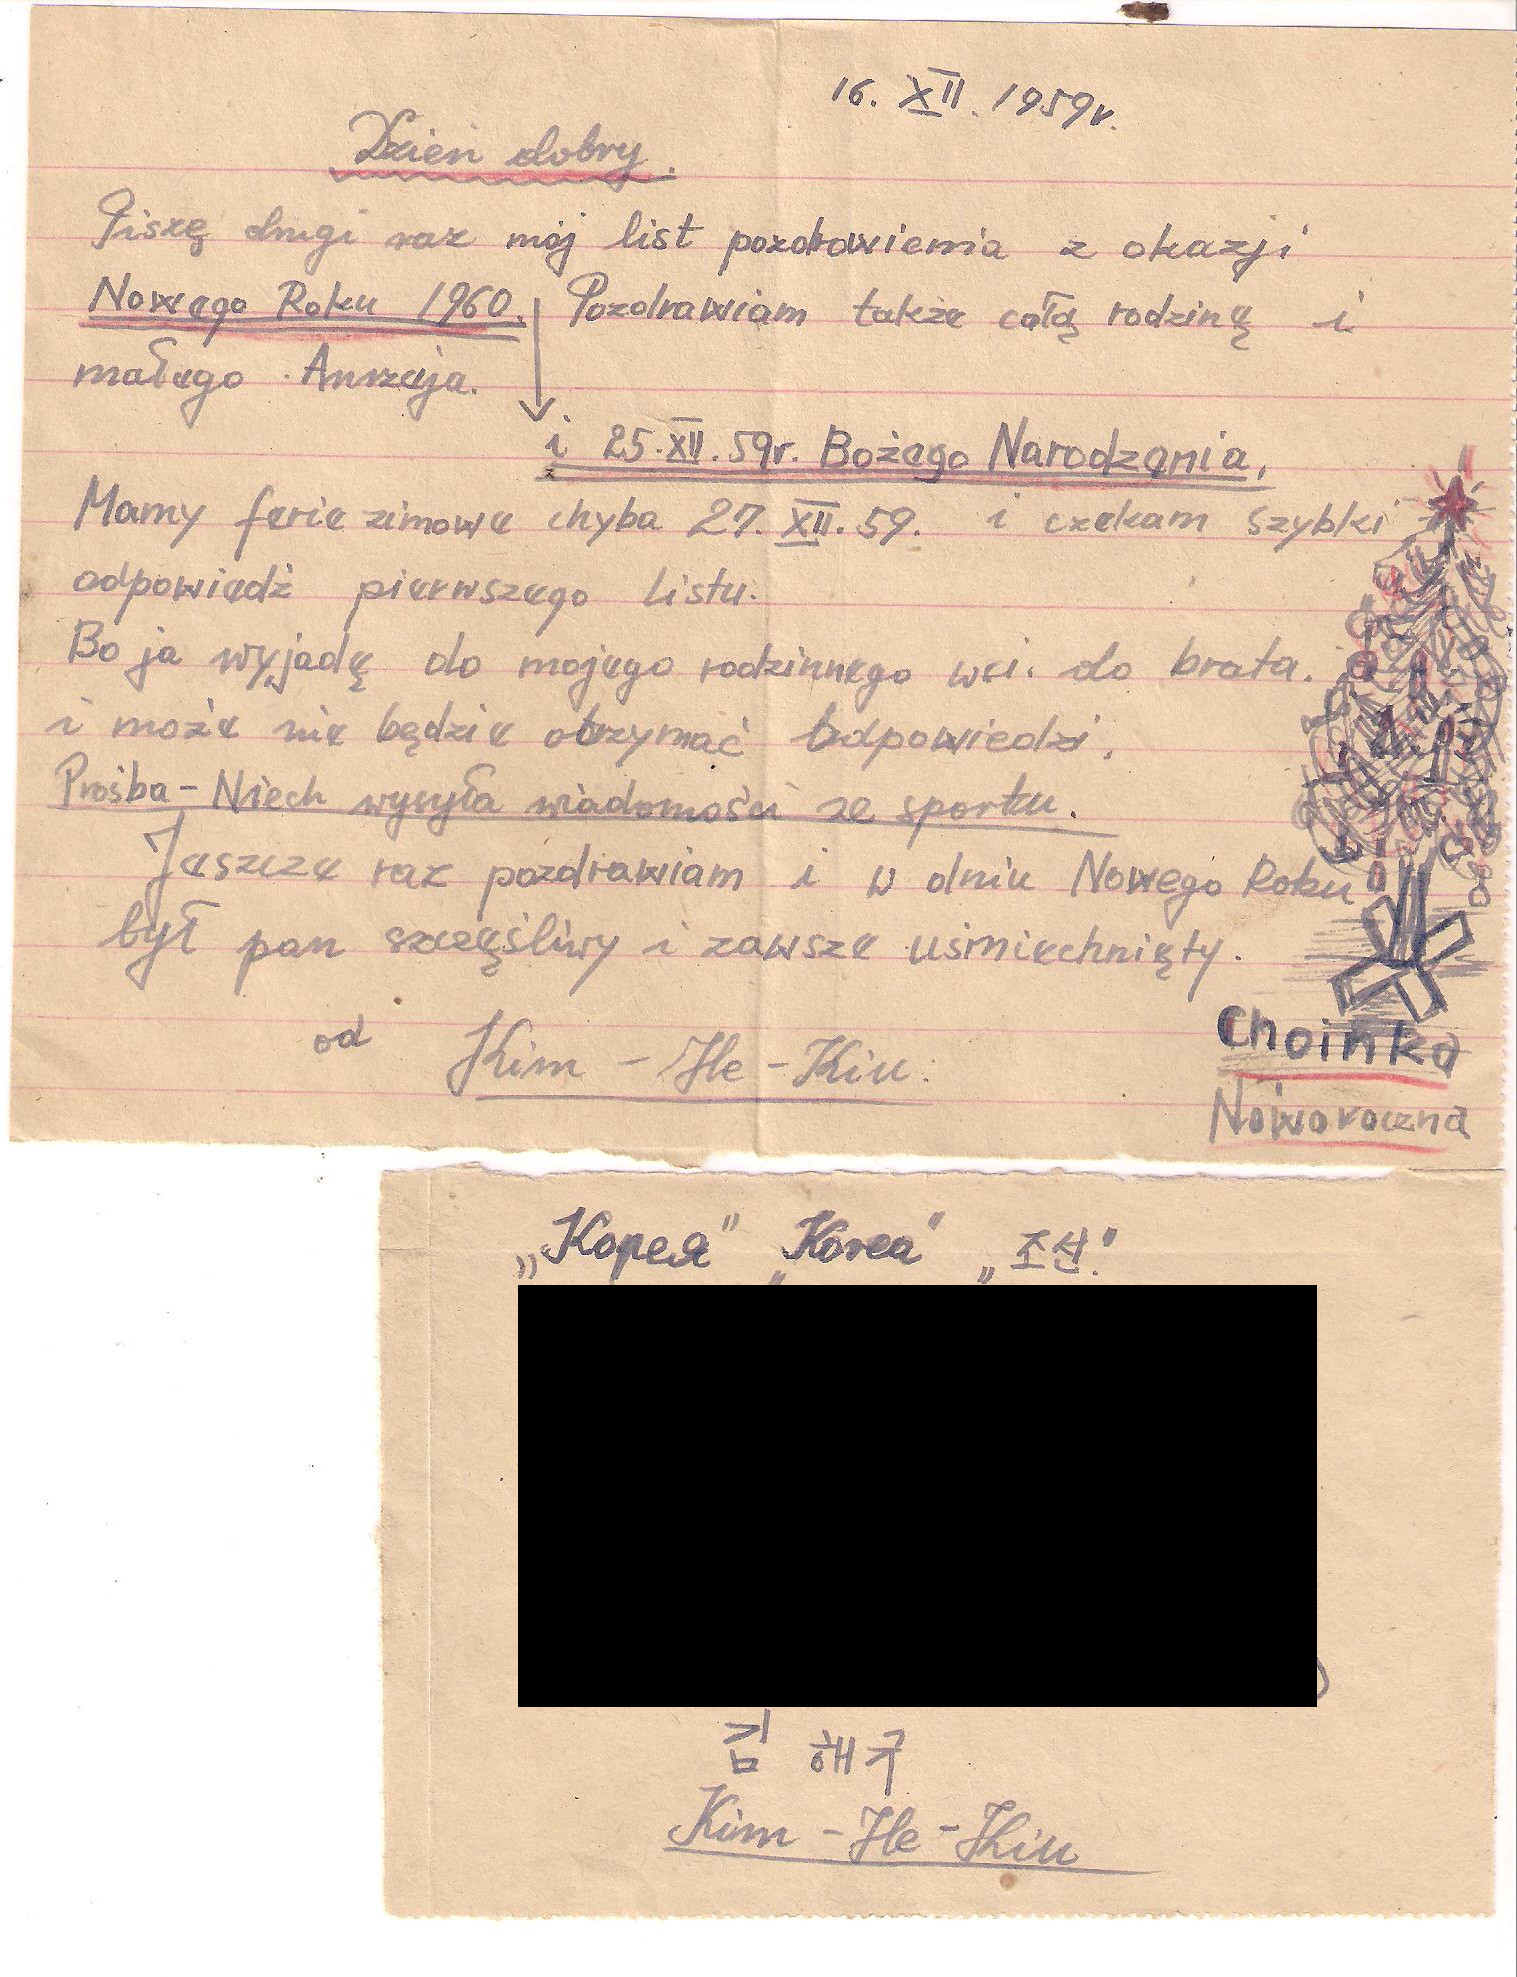 16. XII. 1959r.
Dzień dobry.
Piszę drugi raz mój list pozdrowienia z okazji
Nowego Roku 1960. Pozdrawiam także całą rodzinę i
małego Anrzeja.
i 25.XII.59r. Bożego Narodzenia.
Mamy ferie zimowe chyba 27. XII. 59. i czekam szybki
odpowiedź pierwszego listu.
Bo ja wyjadę do mojego rodzinnego wsi. do brata.
i może nie będzie otrzymać odpowiedzi.
Prośba – Niech wysyła wiadomości ze sportu.
Jeszcze raz pozdrawiam i w dniu Nowego Roku
był pan szczęśliwy i zawsze uśmiechnięty.
od Kim – He – Kiu.
Choinka
Noworoczna
„Корея" „Korea" „조선."
김 해규
Kim – He – Kiu